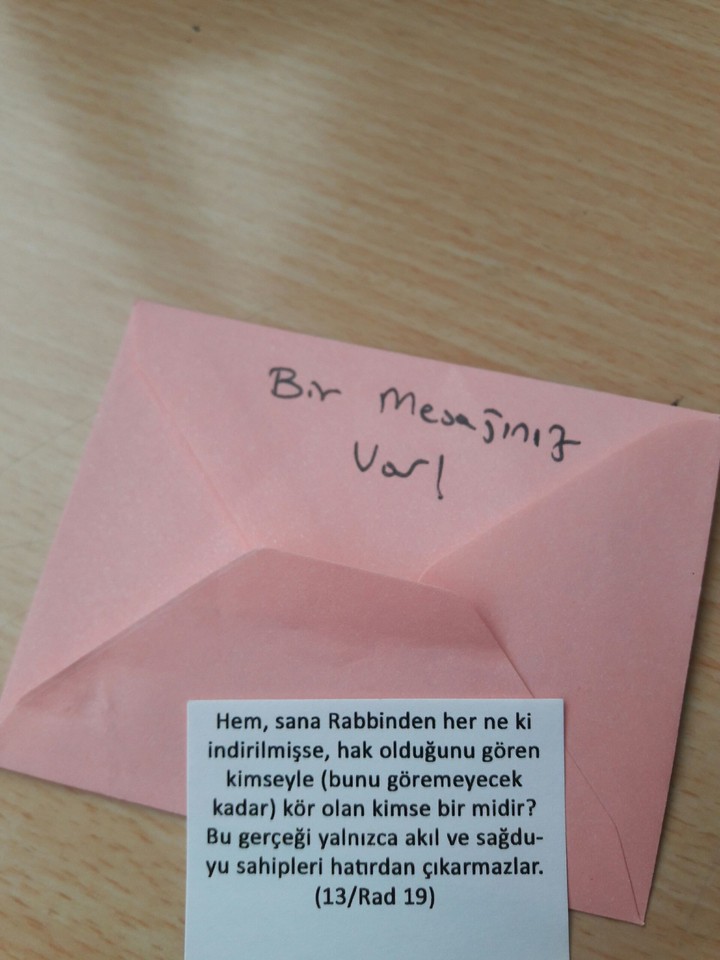 Bir Mesajınız
Var!
Hem, sana Rabbinden her ne ki
indirilmişse, hak olduğunu gören
kimseyle (bunu göremeyecek
kadar) kör olan kimse bir midir?
Bu gerçeği yalnızca akıl ve sağdu-
yu sahipleri hatırdan çıkarmazlar.
(13/Rad 19)